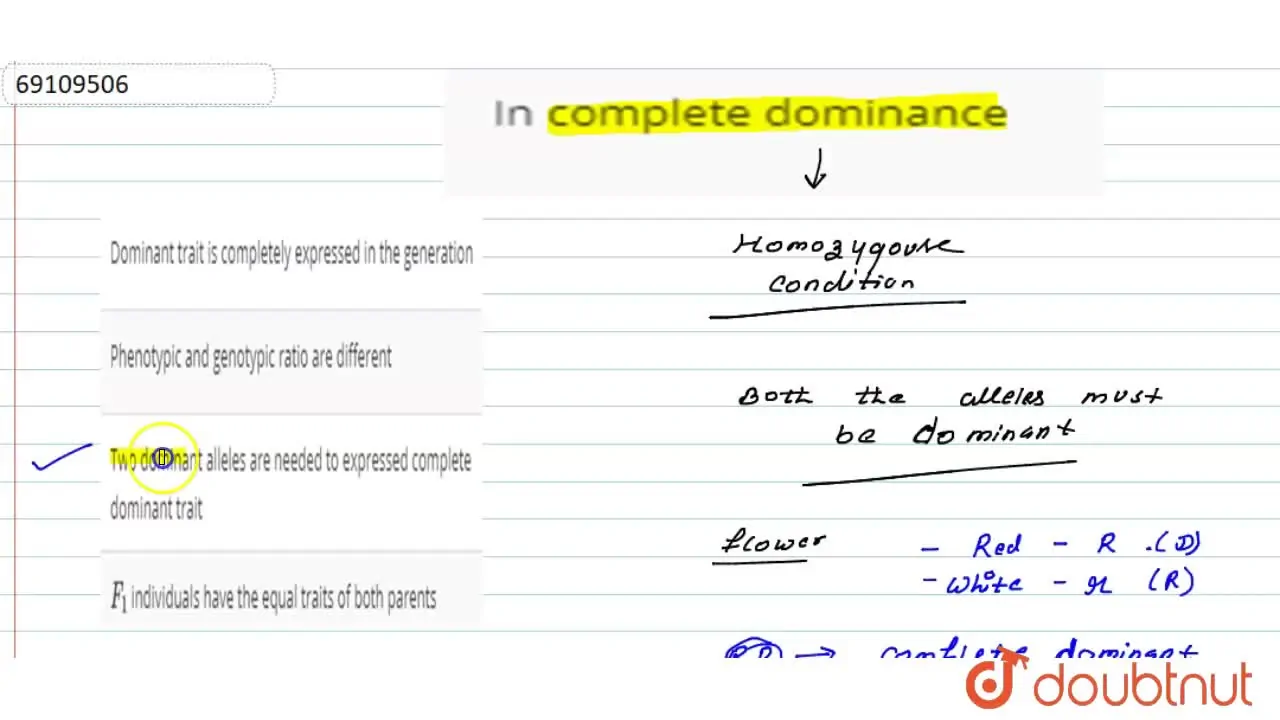 69109506
In complete dominance
Homozygouse
condition
Dominant trait is completely expressed in the generation
Phenotypic and genotypic ratio are different
Both the alleles must
be dominant
Two dominant alleles are needed to expressed complete
dominant trait
flower - Red - R .(D)
- white - r (R)
F₁ individuals have the equal traits of both parents
→ complete dominant
doubtnut